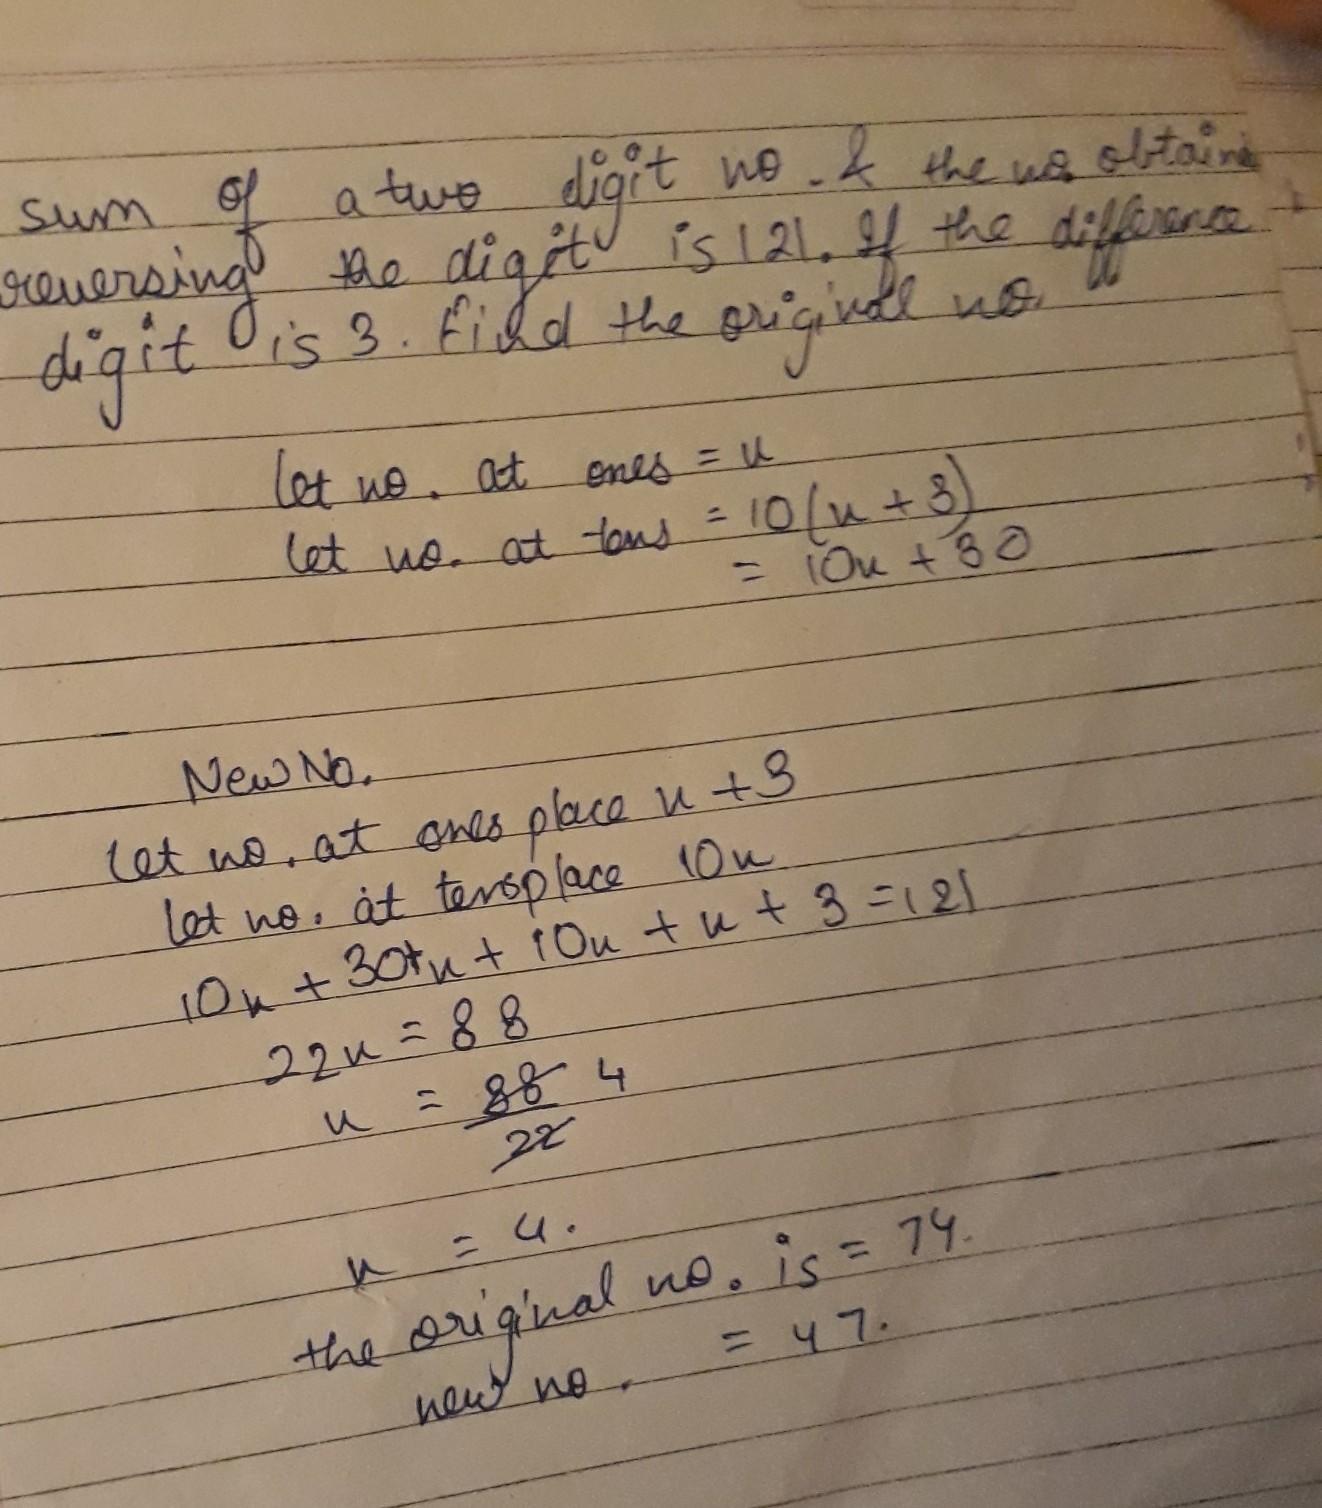 sum of a two digit no. & the no. obtaine
reversing the digit is 121. If the difference
digit is 3. Find the originall no.
let no. at ones = x
let no. at tens = 10(x + 3)
= 10x + 30
New No.
Let no. at ones place x + 3
let no. at tensplace 10x
10x + 30+x + 10x + x + 3 = 121
22x = 88
x = 88/22 4
x = 4.
the original no. is = 74.
new no. = 47.